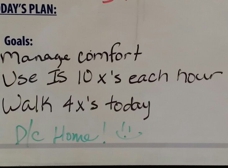 DAY'S PLAN:
Goals:
Manage comfort
Use IS 10 x's each hour
Walk 4x's today
D/c Home!